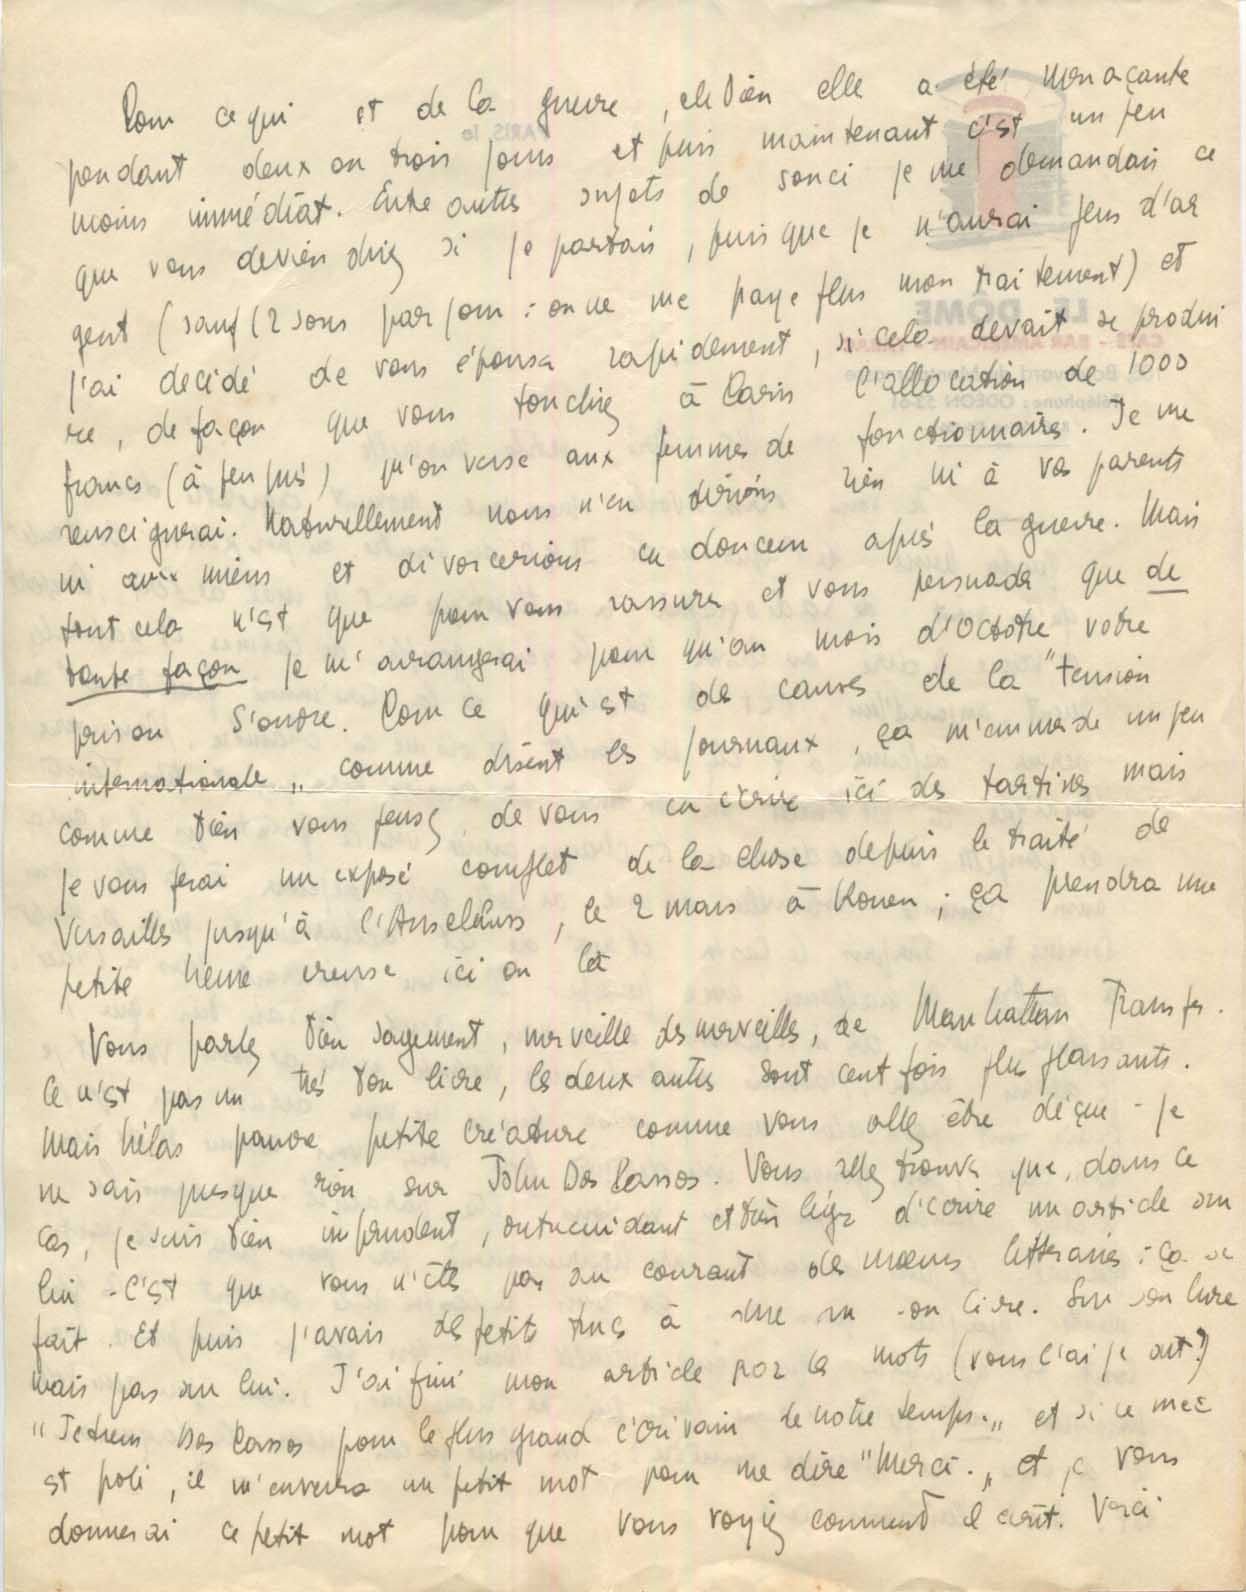 Pour ce qui est de la guerre, eh bien elle a été menaçante
pendant deux ou trois jours et puis maintenant c'est un peu
moins immédiat. Entre autres sujets de souci je me demandais ce
que vous deviendriez si je partais, puisque je n'aurai plus d'ar
gent (sauf 12 sous par jour : on ne me paye plus mon traitement) et
j'ai décidé de vous épouser rapidement, si cela devait se produi
re, de façon que vous touchiez à Paris l'allocation de 1000
francs (à peu près) qu'on verse aux femmes de fonctionnaires. Je me
renseignerai. Naturellement nous n'en dirions rien ni à vos parents
ni aux miens et divorcerions en douceur après la guerre. Mais
tout cela n'est que pour vous rassurer et vous persuader que de
toute façon je m'arrangerai pour qu'au mois d'Octobre votre
prison s'ouvre. Pour ce qui est des causes de la "tension
internationale" comme disent les journaux, ça m'emmerde un peu
comme bien vous pensez de vous en écrire ici des tartines mais
je vous ferai un exposé complet de la chose depuis le traité de
Versailles jusqu'à l'Anschluss, le 2 mars à Rouen ; ça prendra une
petite heure creuse ici ou là
Vous parlez bien sagement, merveille des merveilles, de Manhattan Transfer.
Ce n'est pas un très bon livre, les deux autres sont cent fois plus plaisants.
Mais hélas pauvre petite créature comme vous allez être déçue - je
ne sais presque rien sur John Dos Passos. Vous allez trouver que, dans ce
cas, je suis bien imprudent, outrecuidant et bien léger d'écrire un article sur
lui - C'est que vous n'êtes pas au courant des mœurs littéraires : ça se
fait. Et puis j'avais des petits trucs à dire sur son livre. Sur son livre
mais pas sur lui. J'ai fini mon article par ces mots (vous l'ai je dit?)
"Je tiens Dos Passos pour le plus grand écrivain de notre temps." et si ce mec
est poli, il m'enverra un petit mot pour me dire "Merci." et je vous
donnerai ce petit mot pour que vous voyiez comment il écrit. Voici
PARIS, le
LE DÔME
CAFÉ - BAR AMÉRICAIN